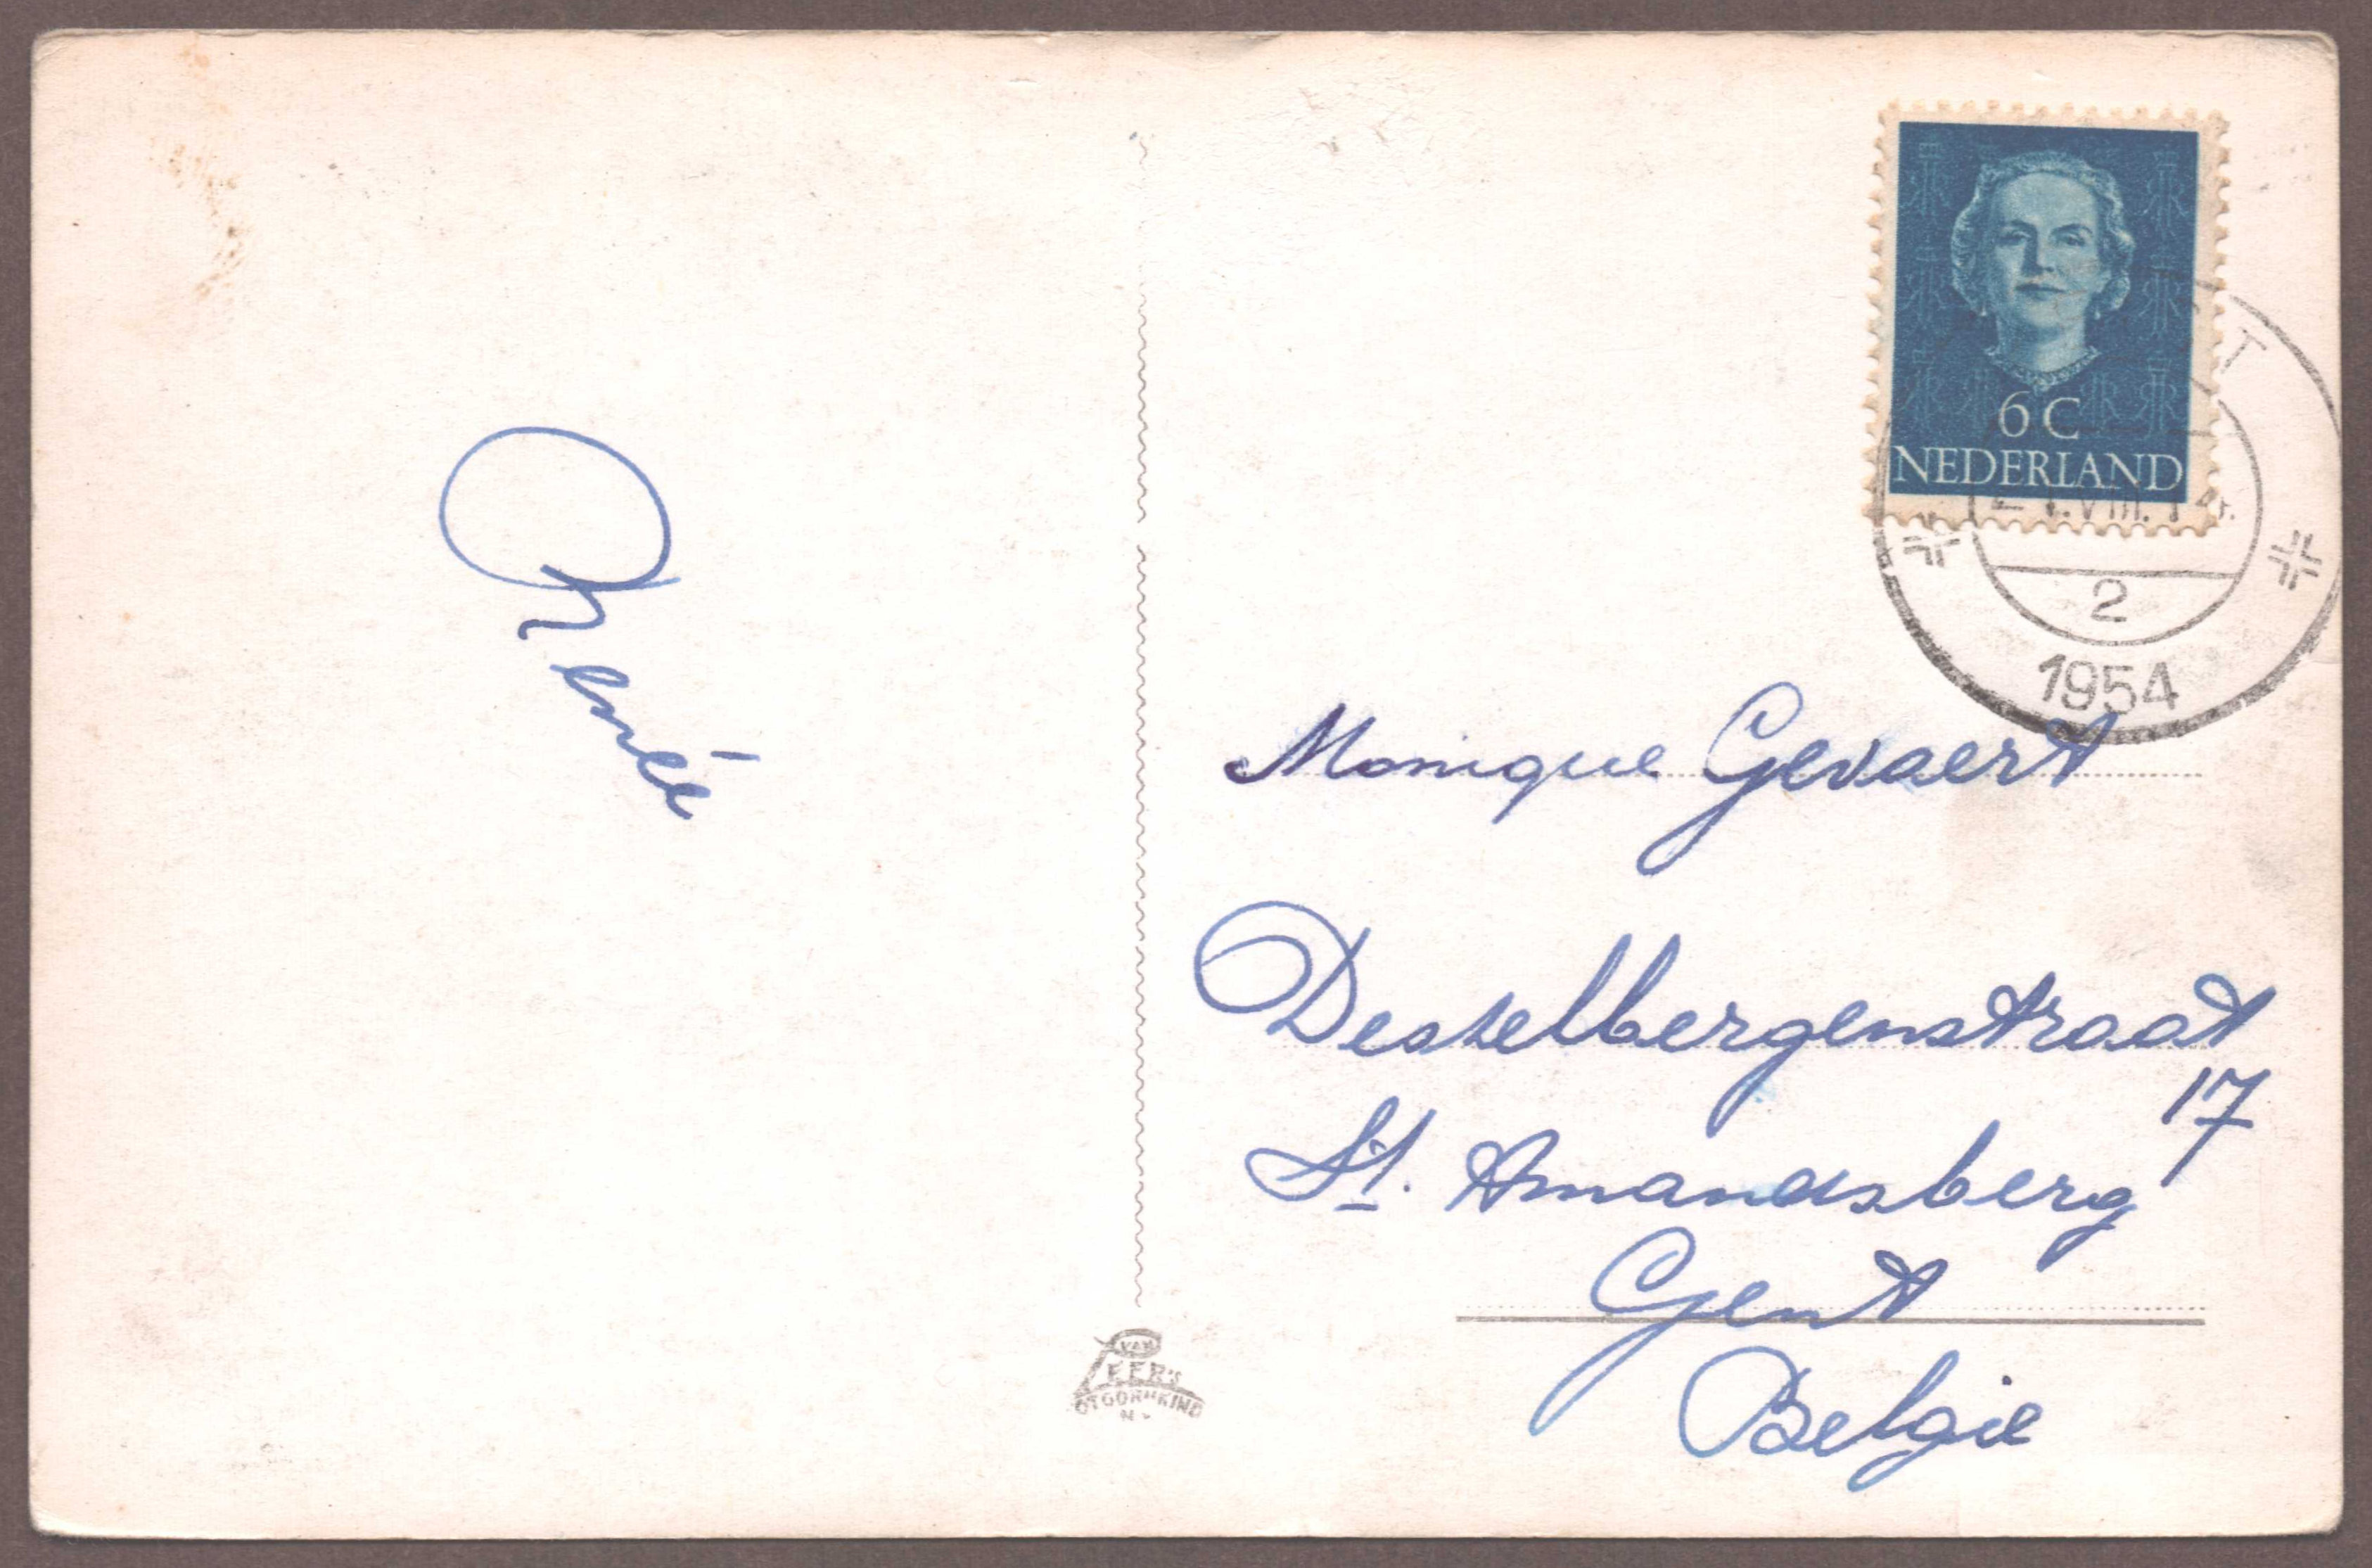 6 C
NEDERLAND
VIII.
2
1954
René
Monique Gevaert
Desselbergenstraat
17
St. Amandsberg
Gent
Belgie
VAN
LEER'S
N.V.